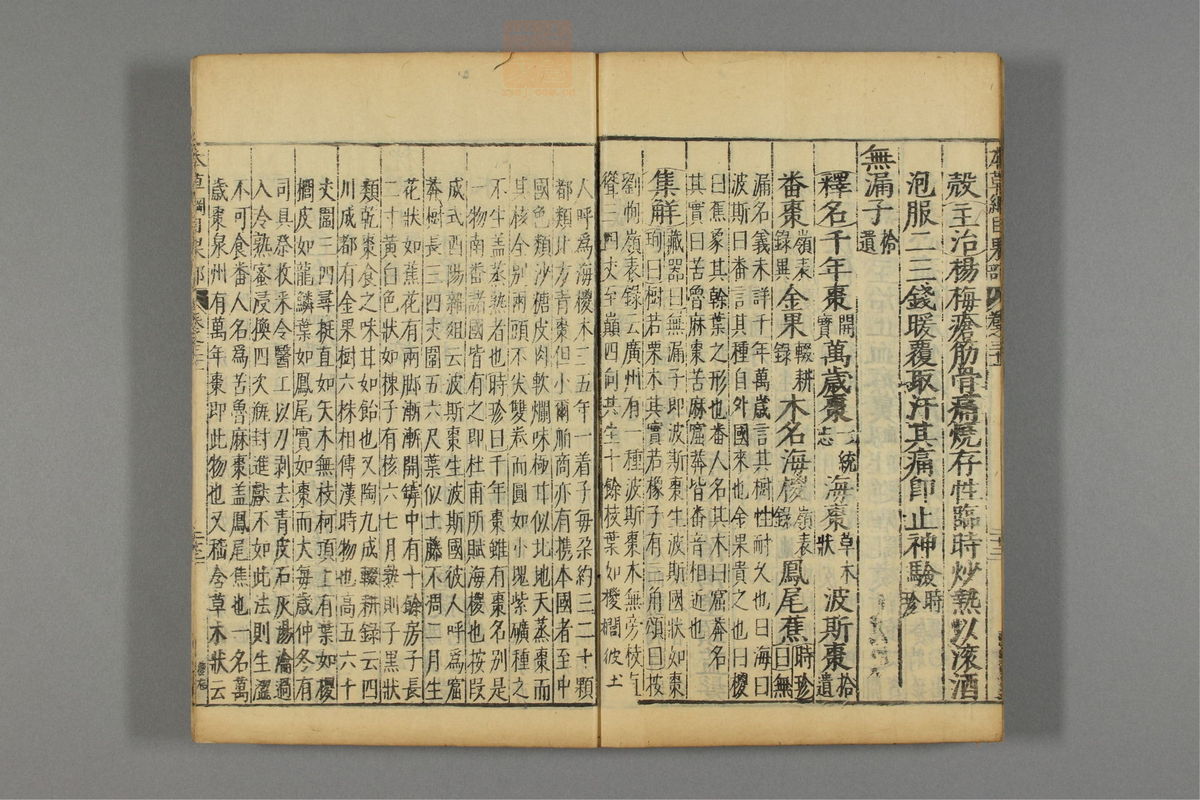 殼主治楊梅瘡筋骨痛燒存性臨時炒熱以滚酒
泡服二三錢暖覆取汗其痛卽止神驗時珍
無漏子拾遺
釋名千年棗開寳萬歲棗一統志海棗草木狀波斯棗拾遺
番棗嶺表錄異金果輟耕錄木名海椶嶺表錄鳳尾蕉時珍曰無
漏名義未詳千年萬歲言其樹性耐久也曰海曰
波斯曰番言其種自外國來也金果貴之也曰椶
曰蕉象其幹葉之形也番人名其木曰窟莽名
其實曰苦魯麻棗苦麻窟莽皆番音相近也
集解藏器曰無漏子卽波斯棗生波斯國狀如棗
珣曰樹若栗木其實若橡子有三角頌曰按
劉恂嶺表錄云廣州有一種波斯棗木無旁枝直
聳三四丈至巔四向共生十餘枝葉如椶櫚彼土
人呼爲海椶木三五年一着子每朶約三二十顆
都類北方青棗但小爾舶商亦有携本國者至中
國色類沙糖皮肉軟爛味極甘似北地天蒸棗而
其核全别兩頭不尖雙卷而圓如小塊紫礦種之
不生盖蒸熟者也時珍曰千年棗雖有棗名别是
一物南番諸國皆有之卽杜甫所賦海椶也按段
成式酉陽雜俎云波斯棗生波斯國彼人呼爲窟
莽樹長三四丈圍五六尺葉似土藤不凋二月生
花狀如蕉花有兩脚漸漸開罅中有十餘房子長
二寸黃白色狀如楝子有核六七月熟則子黑狀
類乾棗食之味甘如飴也又陶九成輟耕錄云四
川成都有金果樹六株相傳漢時物也高五六十
丈圍三四尋挺直如矢木無枝柯頂上有葉如椶
櫚皮如龍鱗葉如鳳尾實如棗而大每歲仲冬有
司具祭收采令醫工以刀剥去青皮石灰湯瀹過
入冷熟蜜浸換四次缾封進獻不如此法則生澀
不可食番人名爲苦魯麻棗盖鳳尾蕉也一名萬
歲棗泉州有萬年棗卽此物也又嵇含草木狀云